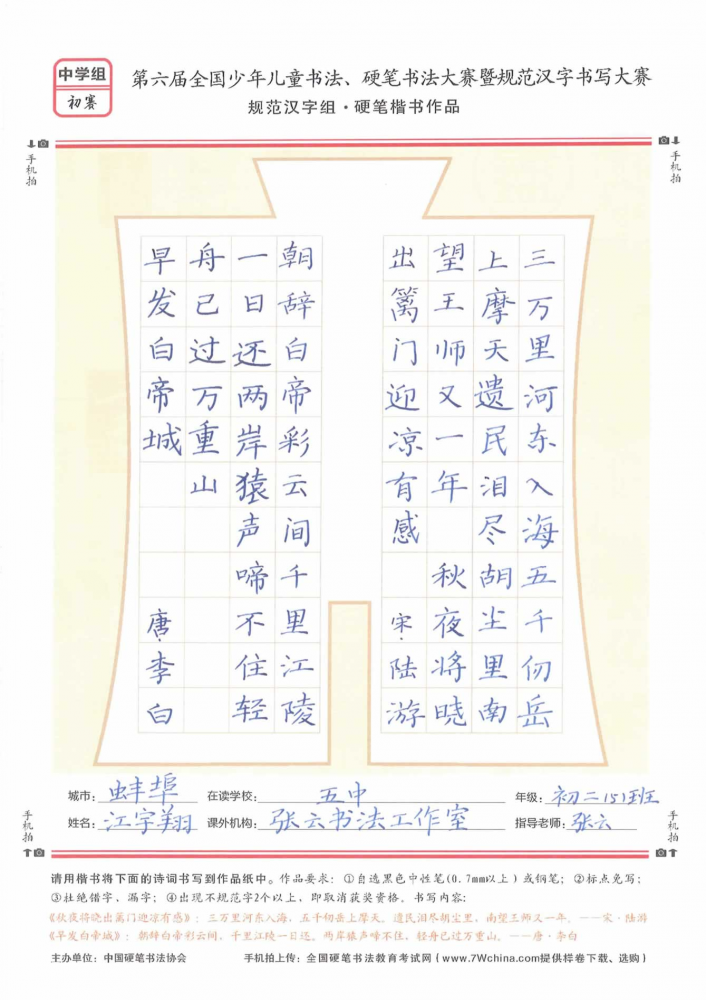 中学组
初赛
第六届全国少年儿童书法、硬笔书法大赛暨规范汉字书写大赛
规范汉字组·硬笔楷书作品
手机拍
手机拍
三万里河东入海五千仞岳
上摩天遗民泪尽胡尘里南
望王师又一年 秋夜将晓
出篱门迎凉有感 宋·陆游
朝辞白帝彩云间千里江陵
一日还两岸猿声啼不住轻
舟已过万重山
早发白帝城 唐·李白
城市：蚌埠 在读学校：五中 年级：初二(5)班
姓名：江宇翔 课外机构：张云书法工作室 指导老师：张云
手机拍
手机拍
请用楷书将下面的诗词书写到作品纸中。作品要求：①自选黑色中性笔(0.7mm以上)或钢笔；②标点免写；
③杜绝错字、漏字；④出现不规范字2个以上，即取消获奖资格。书写内容：
《秋夜将晓出篱门迎凉有感》：三万里河东入海，五千仞岳上摩天。遗民泪尽胡尘里，南望王师又一年。——宋·陆游
《早发白帝城》：朝辞白帝彩云间，千里江陵一日还。两岸猿声啼不住，轻舟已过万重山。——唐·李白
主办单位：中国硬笔书法协会 手机拍上传：全国硬笔书法教育考试网（www.7Wchina.com提供样卷下载、选购）